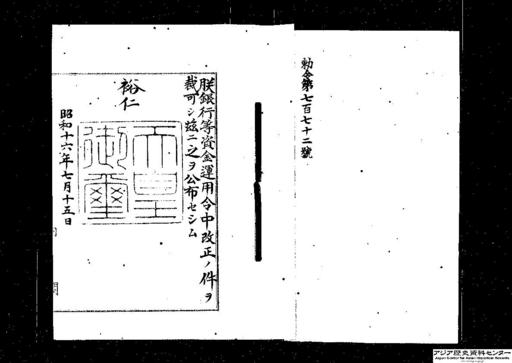 勅令第七百七十二號
朕銀行等資金運用令中改正ノ件ヲ
裁可シ茲ニ之ヲ公布セシム
裕仁
天皇御璽
昭和十六年七月十五日
アジア歴史資料センター
Japan Center for Asian Historical Records